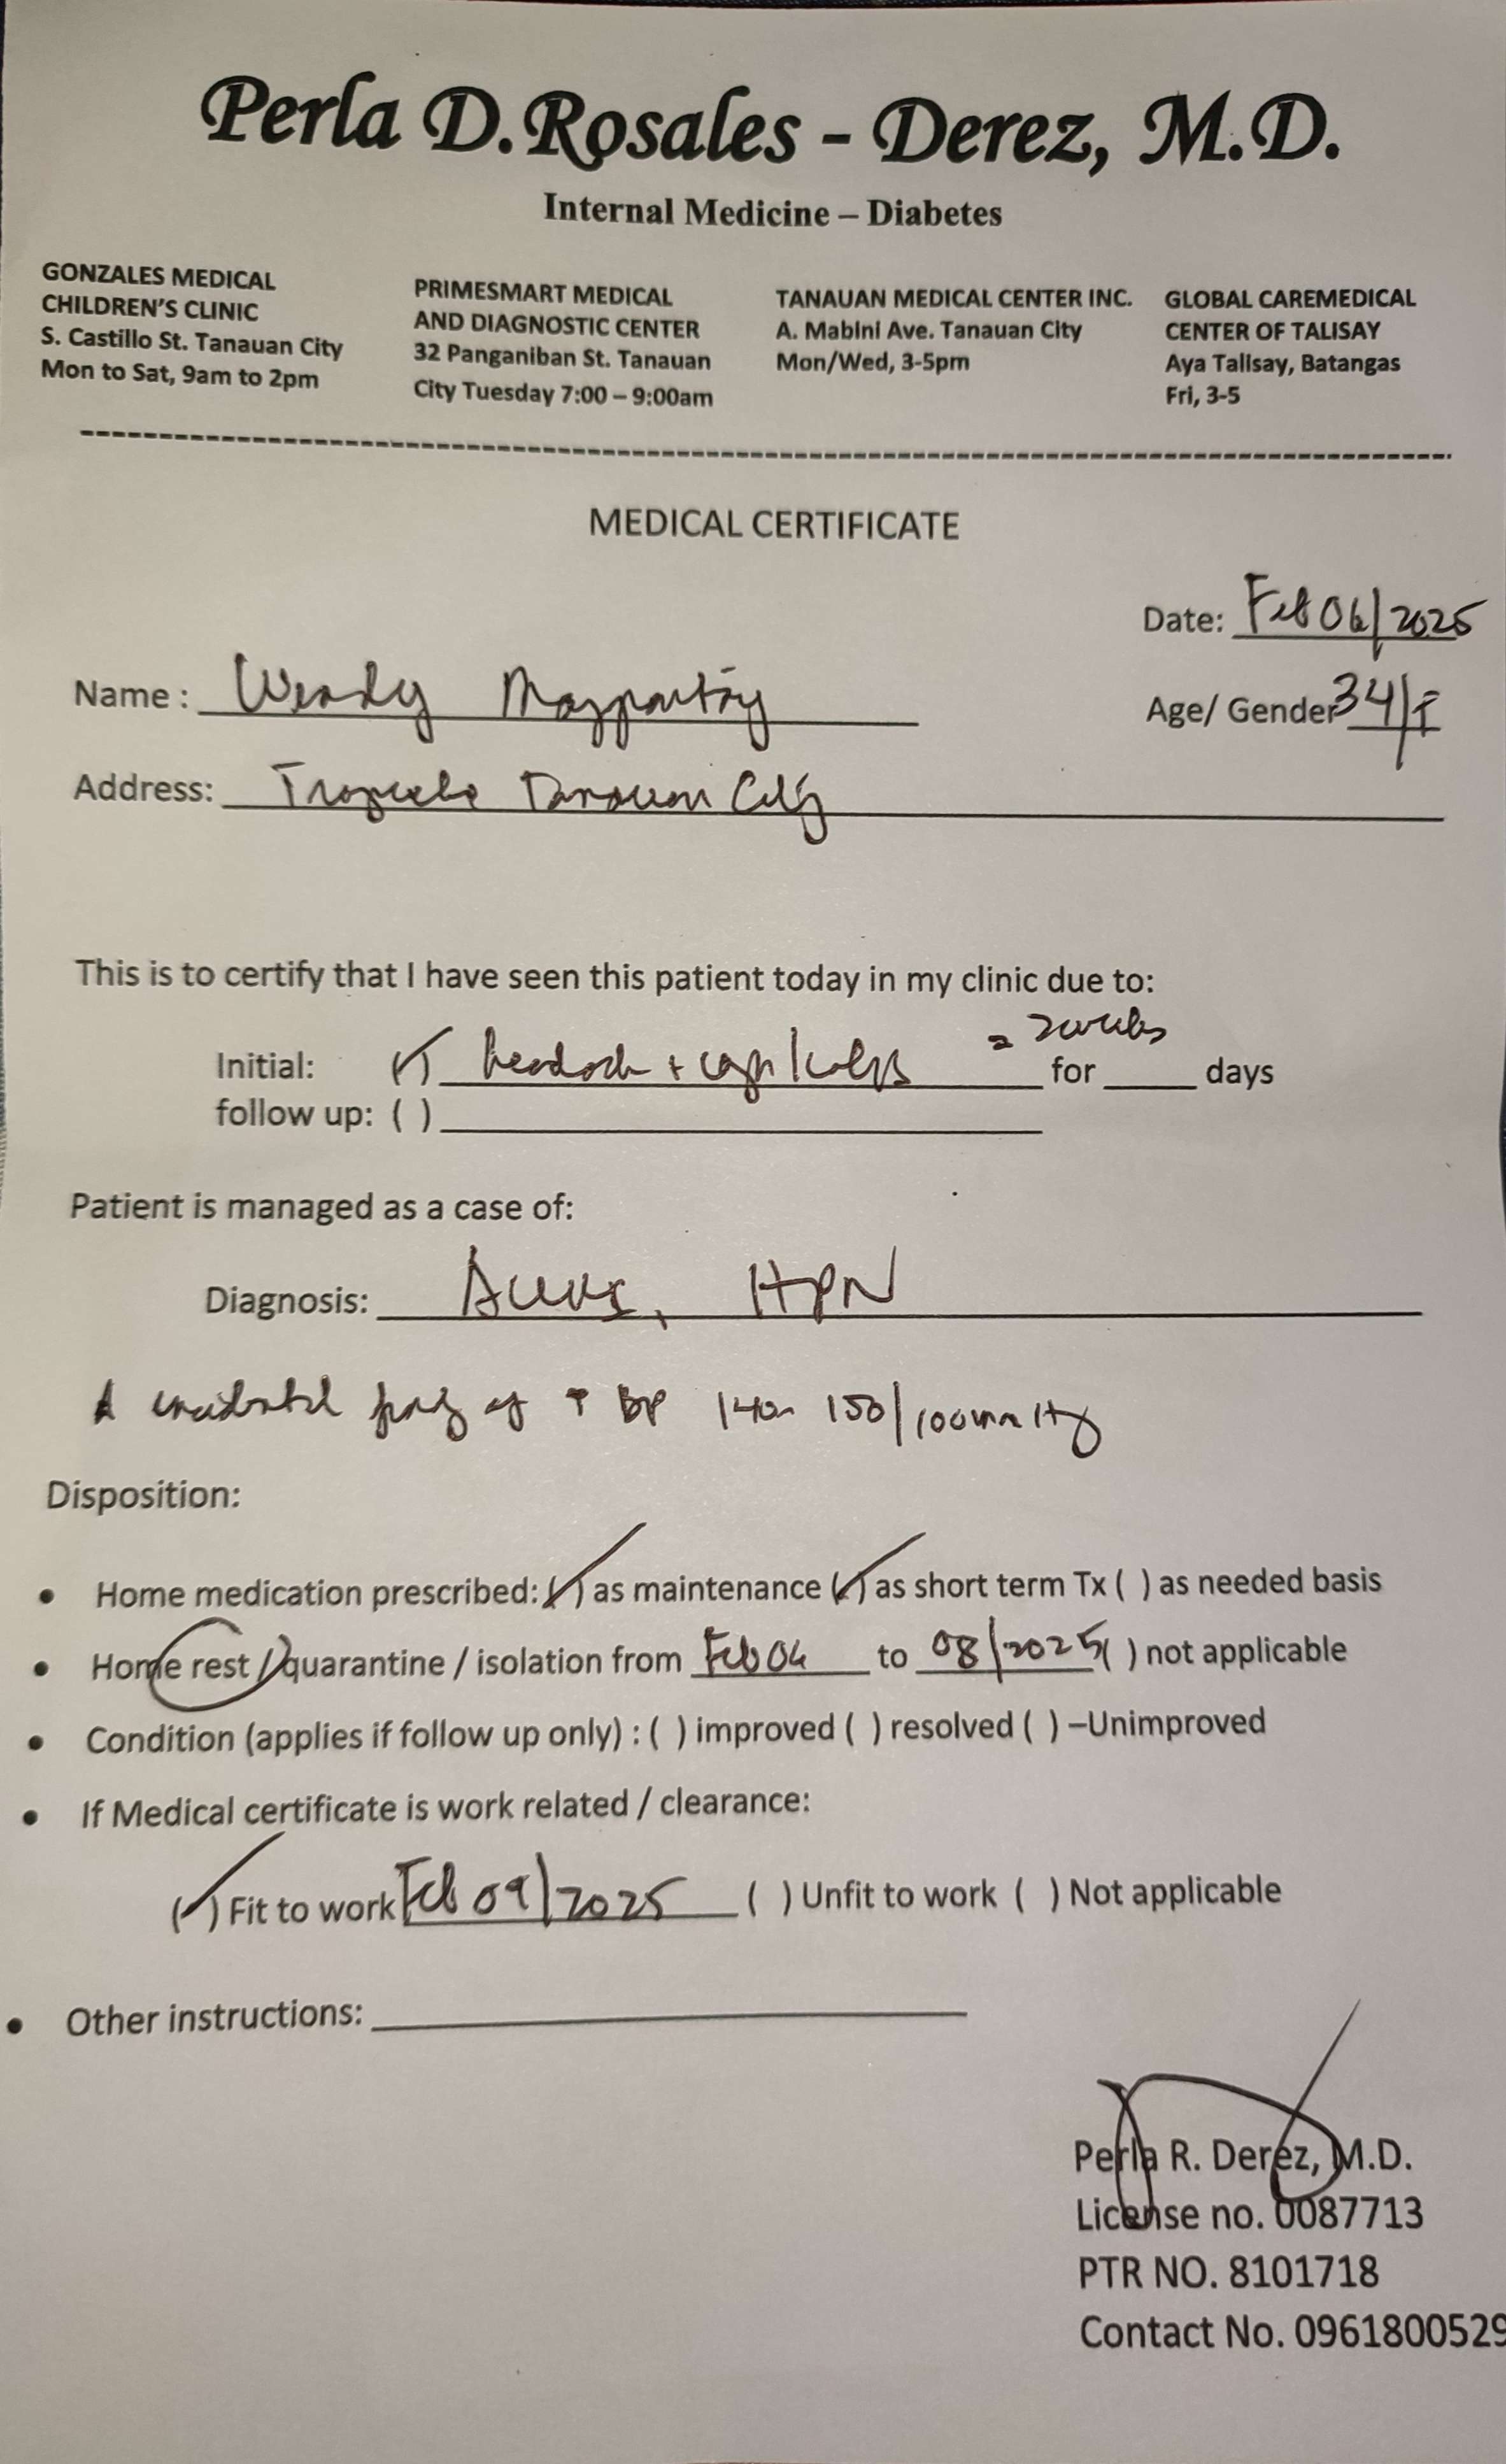 Perla D. Rosales - Derez, M.D.
Internal Medicine – Diabetes
GONZALES MEDICAL
CHILDREN'S CLINIC
S. Castillo St. Tanauan City
Mon to Sat, 9am to 2pm
PRIMESMART MEDICAL
AND DIAGNOSTIC CENTER
32 Panganiban St. Tanauan
City Tuesday 7:00 – 9:00am
TANAUAN MEDICAL CENTER INC.
A. Mabini Ave. Tanauan City
Mon/Wed, 3-5pm
GLOBAL CAREMEDICAL
CENTER OF TALISAY
Aya Talisay, Batangas
Fri, 3-5
MEDICAL CERTIFICATE
Date: Feb 06/2025
Name : Wendy
Age/ Gender 34/F
Address: Tanauan City
This is to certify that I have seen this patient today in my clinic due to:
2 weeks
Initial: (✓) headache + cough/colds for ___ days
follow up: ( )
Patient is managed as a case of:
Diagnosis: HPN
of ↑ BP 140 150/100mmHg
Disposition:
• Home medication prescribed: (✓) as maintenance (✓) as short term Tx ( ) as needed basis
• Home rest / quarantine / isolation from Feb to 08/2025 ( ) not applicable
• Condition (applies if follow up only) : ( ) improved ( ) resolved ( ) –Unimproved
• If Medical certificate is work related / clearance:
(✓) Fit to work Feb 09/2025 ( ) Unfit to work ( ) Not applicable
• Other instructions:
Perla R. Derez, M.D.
License no. 0087713
PTR NO. 8101718
Contact No. 0961800529